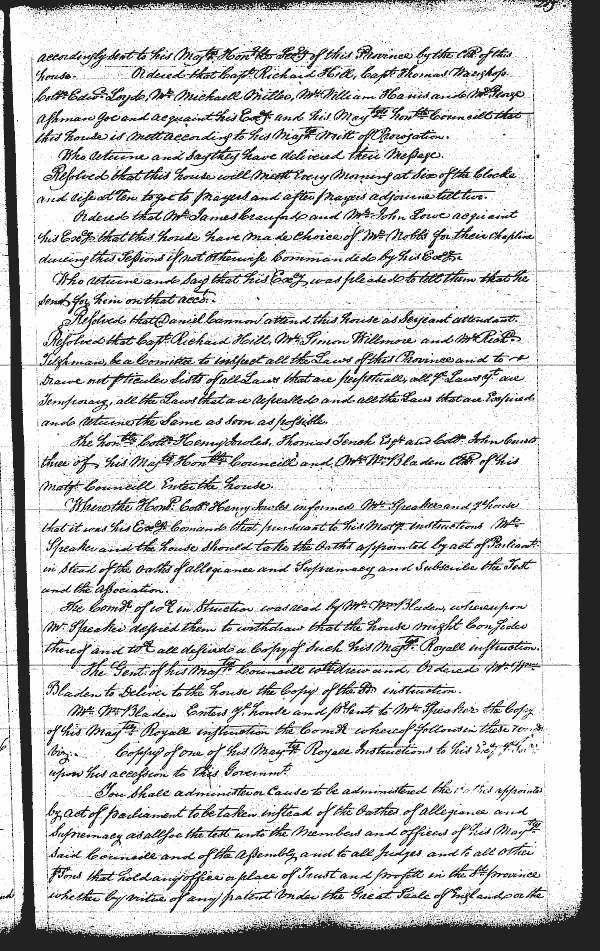 accordingly sent to his Majts Honble Secry of this Province by the Clk of this
house. Ordered that Capt Richard Hill, Capt Thomas
Collo Edwd Loyd, Mr Michaell Miller, Mr William Harris and Mr George
Ashman goe and acquaint his Excy and his Maytys honble Councill that
this house is mett according to his Majts Writt of Prorogation.
Who returne and say they have delivered their Message.
Resolved that this house will meett Every Morning at Six of the Clocke
and rise at Ten to goe to prayers and after prayers adjourne till two.
Ordered that Mr James Crauford and Mr John Lowe acquaint
his Excy that this house have made Choice of Mr Nobbs for their Chaplin
dureing this Sessions if not otherwise Commanded by his Excy
Who returne and say that his Excy was pleased to tell them that he
sent for him on that acco.
Resolved that Daniel Cannon attend this house as Sergeant attendant.
Resolved that Capt Richard Hill, Mr Simon Willmore and Mr Richd
Tilghman, be a Comittee to inspect all the Laws of this Province and to
Drawe out pticuler Lists of all Laws that are perpetuall, all ye Laws yt are
Temporary, all the Laws that are repealled and all the Laws that are Expired
and returne the Same as soon as possible.
The honble Collo Henry Jowles, Thomas Tench Esqr and Collo John
three of his Majts Honble Councill and Mr Wm Bladen Clk of his
Matys Councill Enter the house.
Where the Honble Collo Henry Jowles informed Mr Speaker and ye house
that it was his Excys Comand that pursuant to his Matys instructions Mr
Speaker and the house should take the Oaths appointed by act of Parliamt
in Stead of the oaths of allegiance and Supremacy and Subscribe the Test
and the Association.
The Comd of wch in Struction was read by Mr Wm Bladen, whereupon
Mr Speaker desired them to withdraw that the house might Consider
thereof and wth all desired a Copy of Such his Majts Royall instruction.
The Gent of his Majts Councill withdrew and Ordered Mr Wm
Bladen to Deliver to the house the Copy of the sd instruction.
Mr Wm Bladen Enters ye house and psents to Mr Speaker the Copy
of his Maytys Royall instruction the Comd whereof follows in these words
Viz. Coppy of one of his Maytys Royall Instructions to his Excy
upon his accession to this Governmt.
You shall administer or Cause to be administered the appointed
by act of parliament to be taken instead of the Oathes of allegiance and
Supremacy as allsoe the test unto the Members and officers of his Maytys
Said Councill and of the Assembly and to all Judges and to all other
psons that hold any office or place of Trust and profitt in the sd province
whether by virtue of any patent Under the Great Seale of England or the